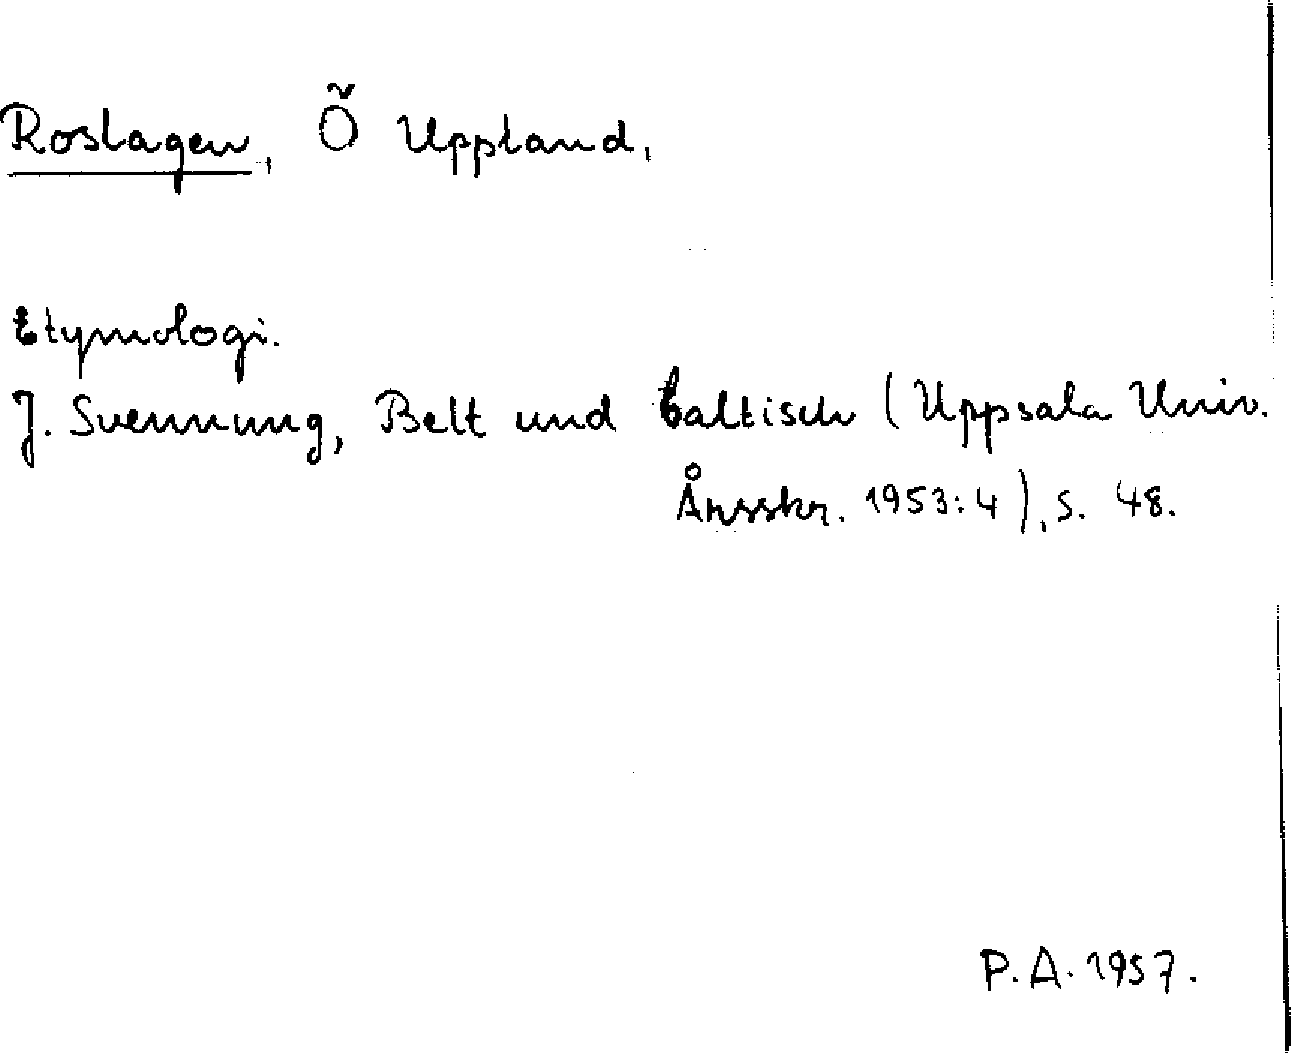 Roslagen, Ö Uppland,
Etymologi.
J. Svennung, Belt und baltisch (Uppsala Univ.
Årsskr. 1953:4), s. 48.
P.A. 1957.